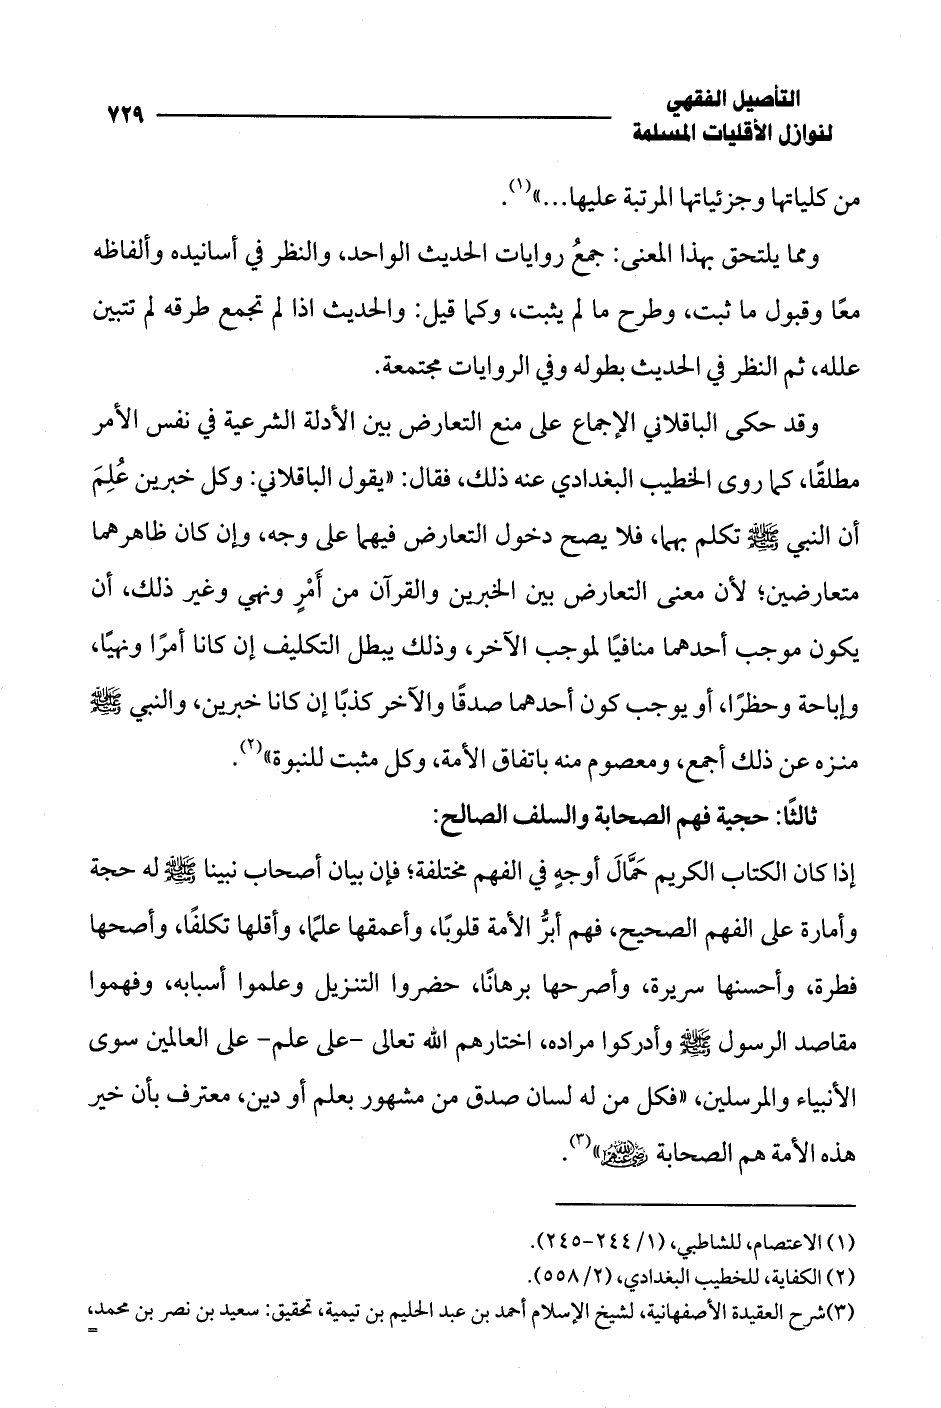 التأصيل الفقهي
لنوازل الأقليات المسلمة
٧٢٩
من كلياتها وجزئياتها المرتبة عليها...»(١).
ومما يلتحق بهذا المعنى: جمعُ روايات الحديث الواحد، والنظر في أسانيده وألفاظه
معًا وقبول ما ثبت، وطرح ما لم يثبت، وكما قيل: والحديث اذا لم تجمع طرقه لم تتبين
علله، ثم النظر في الحديث بطوله وفي الروايات مجتمعة.
وقد حكى الباقلاني الإجماع على منع التعارض بين الأدلة الشرعية في نفس الأمر
مطلقًا، كما روى الخطيب البغدادي عنه ذلك، فقال: «يقول الباقلاني: وكل خبرين عُلِمَ
أن النبي ﷺ تكلم بهما، فلا يصح دخول التعارض فيهما على وجه، وإن كان ظاهرهما
متعارضين؛ لأن معنى التعارض بين الخبرين والقرآن من أَمْرٍ ونهي وغير ذلك، أن
يكون موجب أحدهما منافيًا لموجب الآخر، وذلك يبطل التكليف إن كانا أمرًا ونهيًا،
وإباحة وحظرًا، أو يوجب كون أحدهما صدقًا والآخر كذبًا إن كانا خبرين، والنبي ﷺ
منزه عن ذلك أجمع، ومعصوم منه باتفاق الأمة، وكل مثبت للنبوة»(٢).
ثالثًا: حجية فهم الصحابة والسلف الصالح:
إذا كان الكتاب الكريم حَمَّالَ أوجهٍ في الفهم مختلفة؛ فإن بيان أصحاب نبينا ﷺ له حجة
وأمارة على الفهم الصحيح، فهم أبرُّ الأمة قلوبًا، وأعمقها علمًا، وأقلها تكلفًا، وأصحها
فطرة، وأحسنها سريرة، وأصرحها برهانًا، حضروا التنزيل وعلموا أسبابه، وفهموا
مقاصد الرسول ﷺ وأدركوا مراده، اختارهم الله تعالى -على علم- على العالمين سوى
الأنبياء والمرسلين، «فكل من له لسان صدق من مشهور بعلم أو دين، معترف بأن خير
هذه الأمة هم الصحابة رضي الله عنهم»(٣).
(١) الاعتصام، للشاطبي، (١/ ٢٤٤-٢٤٥).
(٢) الكفاية، للخطيب البغدادي، (٢/ ٥٥٨).
(٣)شرح العقيدة الأصفهانية، لشيخ الإسلام أحمد بن عبد الحليم بن تيمية، تحقيق: سعيد بن نصر بن محمد،
=